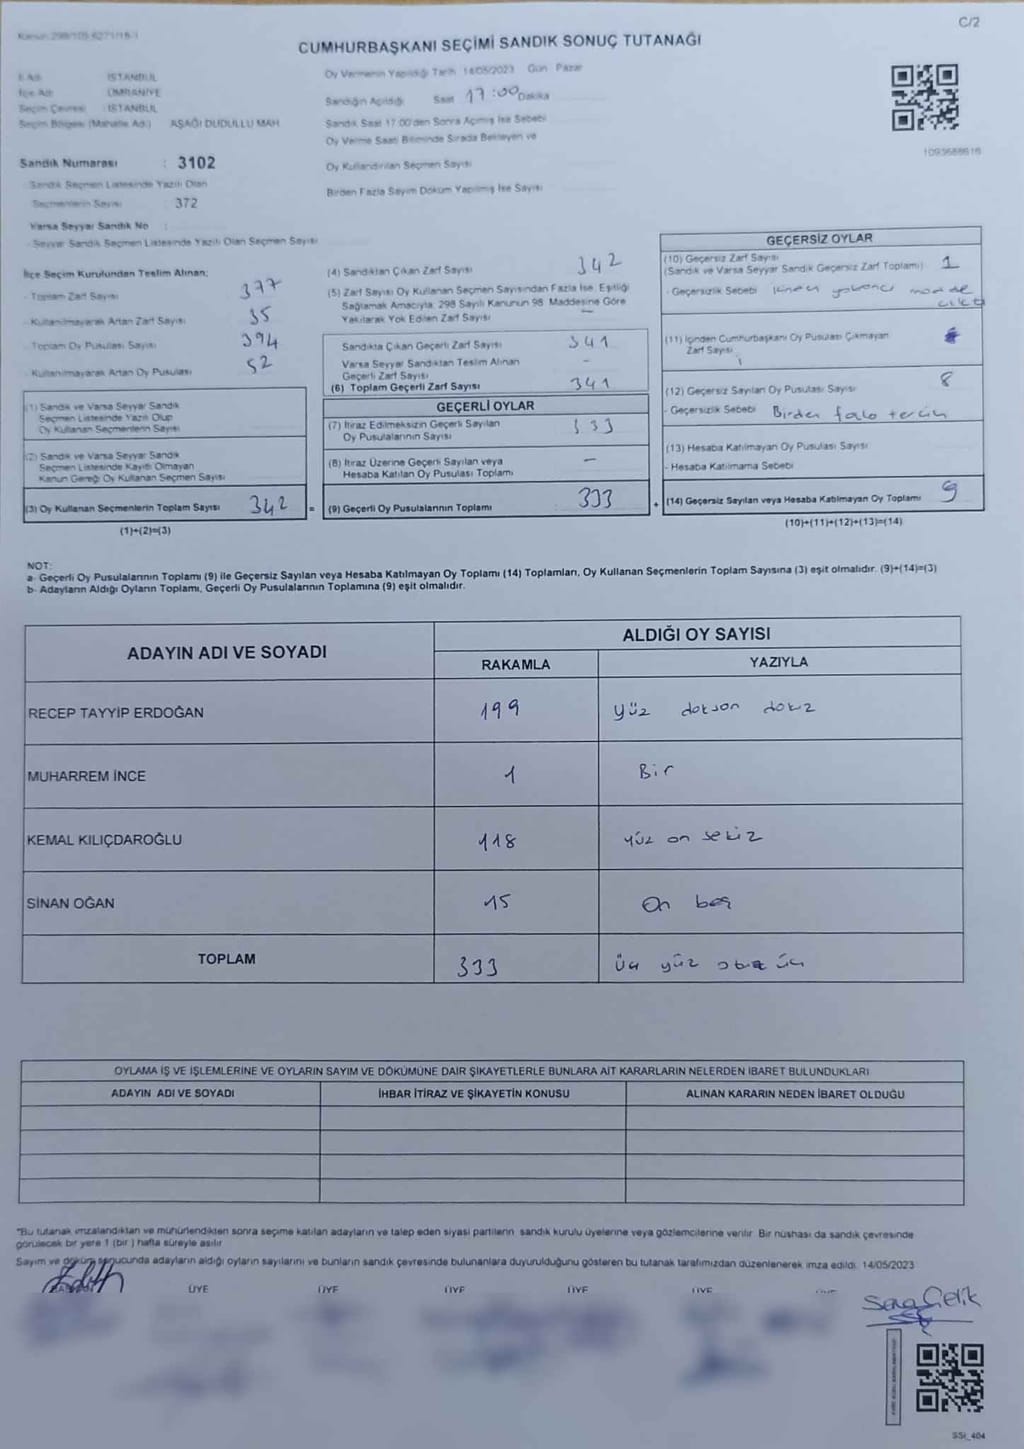 C/2
Kanun 298/105-6271/16-1
CUMHURBAŞKANI SEÇİMİ SANDIK SONUÇ TUTANAĞI
İl Adı : İSTANBUL
İlçe Adı : ÜMRANİYE
Seçim Çevresi : İSTANBUL
Seçim Bölgesi (Mahalle Ad.) AŞAĞI DUDULLU MAH
Sandık Numarası : 3102
- Sandık Seçmen Listesinde Yazılı Olan
Seçmenlerin Sayısı 372
Varsa Seyyar Sandık No :
- Seyyar Sandık Seçmen Listesinde Yazılı Olan Seçmen Sayısı
Oy Vermenin Yapıldığı Tarih 14/05/2023 Gün : Pazar
Sandığın Açıldığı Saat 17:00 Dakika
Sandık Saat 17.00'den Sonra Açılmış İse Sebebi
Oy Verme Saati Bitiminde Sırada Bekleyen ve
Oy Kullandırılan Seçmen Sayısı
Birden Fazla Sayım Döküm Yapılmış İse Sayısı
1093688616
İlçe Seçim Kurulundan Teslim Alınan;
- Toplam Zarf Sayısı 377
- Kullanılmayarak Artan Zarf Sayısı 35
- Toplam Oy Pusulası Sayısı 394
- Kullanılmayarak Artan Oy Pusulası 52
(1) Sandık ve Varsa Seyyar Sandık
Seçmen Listesinde Yazılı Olup
Oy Kullanan Seçmenlerin Sayısı
(2) Sandık ve Varsa Seyyar Sandık
Seçmen Listesinde Kayıtlı Olmayan
Kanun Gereği Oy Kullanan Seçmen Sayısı
(3) Oy Kullanan Seçmenlerin Toplam Sayısı 342 =
(1)+(2)=(3)
(4) Sandıktan Çıkan Zarf Sayısı 342
(5) Zarf Sayısı Oy Kullanan Seçmen Sayısından Fazla İse, Eşitliği
Sağlamak Amacıyla, 298 Sayılı Kanunun 98. Maddesine Göre
Yakılarak Yok Edilen Zarf Sayısı –
Sandıkta Çıkan Geçerli Zarf Sayısı 341
Varsa Seyyar Sandıktan Teslim Alınan
Geçerli Zarf Sayısı -
(6) Toplam Geçerli Zarf Sayısı 341
GEÇERLİ OYLAR
(7) İtiraz Edilmeksizin Geçerli Sayılan
Oy Pusulalarının Sayısı 333
(8) İtiraz Üzerine Geçerli Sayılan veya
Hesaba Katılan Oy Pusulası Toplamı –
(9) Geçerli Oy Pusulalarının Toplamı 333 +
GEÇERSİZ OYLAR
(10) Geçersiz Zarf Sayısı
(Sandık ve Varsa Seyyar Sandık Geçersiz Zarf Toplamı) 1
- Geçersizlik Sebebi yabancı madde
çıktı
(11) İçinden Cumhurbaşkanı Oy Pusulası Çıkmayan
Zarf Sayısı
(12) Geçersiz Sayılan Oy Pusulası Sayısı 8
- Geçersizlik Sebebi Birden fazla tercih
(13) Hesaba Katılmayan Oy Pusulası Sayısı
- Hesaba Katılmama Sebebi
(14) Geçersiz Sayılan veya Hesaba Katılmayan Oy Toplamı 9
(10)+(11)+(12)+(13)=(14)
NOT:
a- Geçerli Oy Pusulalarının Toplamı (9) ile Geçersiz Sayılan veya Hesaba Katılmayan Oy Toplamı (14) Toplamları, Oy Kullanan Seçmenlerin Toplam Sayısına (3) eşit olmalıdır. (9)+(14)=(3)
b- Adayların Aldığı Oyların Toplamı, Geçerli Oy Pusulalarının Toplamına (9) eşit olmalıdır.
ADAYIN ADI VE SOYADI ALDIĞI OY SAYISI
RAKAMLA YAZIYLA
RECEP TAYYİP ERDOĞAN 199 yüz doksan dokuz
MUHARREM İNCE 1 Bir
KEMAL KILIÇDAROĞLU 118 yüz on sekiz
SİNAN OĞAN 15 On beş
TOPLAM 333 üç yüz otuz üç
OYLAMA İŞ VE İŞLEMLERİNE VE OYLARIN SAYIM VE DÖKÜMÜNE DAİR ŞİKAYETLERLE BUNLARA AİT KARARLARIN NELERDEN İBARET BULUNDUKLARI
ADAYIN ADI VE SOYADI İHBAR İTİRAZ VE ŞİKAYETİN KONUSU ALINAN KARARIN NEDEN İBARET OLDUĞU
*Bu tutanak imzalandıktan ve mühürlendikten sonra seçime katılan adayların ve talep eden siyasi partilerin sandık kurulu üyelerine veya gözlemcilerine verilir. Bir nüshası da sandık çevresinde
görülecek bir yere 1 (bir) hafta süreyle asılır
Sayım ve döküm sonucunda adayların aldığı oyların sayılarını ve bunların sandık çevresinde bulunanlara duyurulduğunu gösteren bu tutanak tarafımızdan düzenlenerek imza edildi. 14/05/2023
BAŞKAN ÜYE ÜYE ÜYE ÜYE ÜYE ÜYE
Çelik
SSt_404